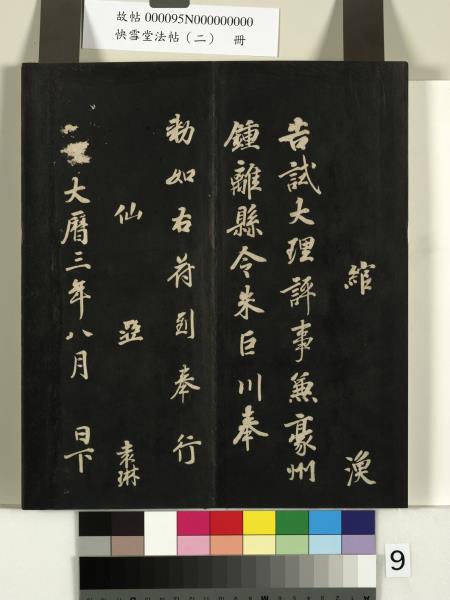 故帖 000095N000000000
快雪堂法帖（二） 冊
綰 渙
告試大理評事兼豪州
鍾離縣令朱巨川奉
勅如右符到奉行
仙 亞 袁琳
大曆三年八月 日下
9